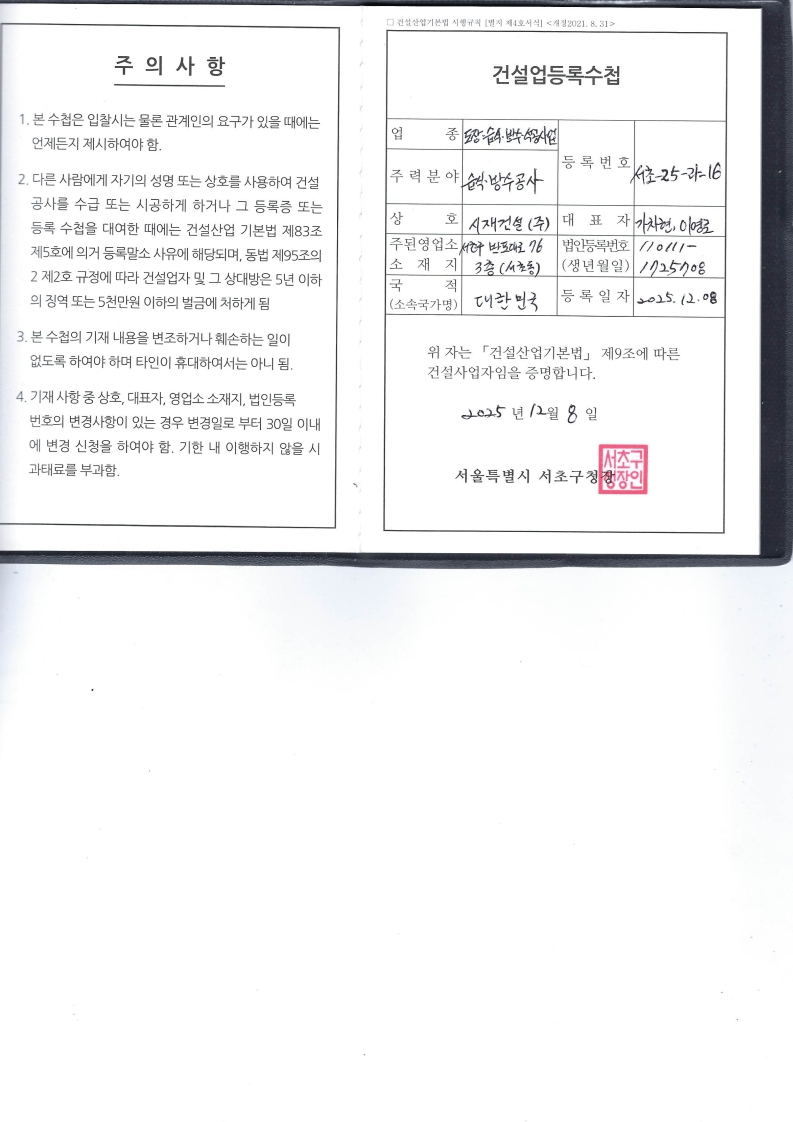 주 의 사 항
1. 본 수첩은 입찰시는 물론 관계인의 요구가 있을 때에는
언제든지 제시하여야 함.
2. 다른 사람에게 자기의 성명 또는 상호를 사용하여 건설
공사를 수급 또는 시공하게 하거나 그 등록증 또는
등록 수첩을 대여한 때에는 건설산업 기본법 제83조
제5호에 의거 등록말소 사유에 해당되며, 동법 제95조의
2 제2호 규정에 따라 건설업자 및 그 상대방은 5년 이하
의 징역 또는 5천만원 이하의 벌금에 처하게 됨
3. 본 수첩의 기재 내용을 변조하거나 훼손하는 일이
없도록 하여야 하며 타인이 휴대하여서는 아니 됨.
4. 기재 사항 중 상호, 대표자, 영업소 소재지, 법인등록
번호의 변경사항이 있는 경우 변경일로 부터 30일 이내
에 변경 신청을 하여야 함. 기한 내 이행하지 않을 시
과태료를 부과함.
□ 건설산업기본법 시행규칙 [별지 제4호서식] <개정2021. 8. 31>
건설업등록수첩
업 종 도장·습식·방수·석공사업
등 록 번 호 서초-25-라-16
주 력 분 야 습식·방수공사
상 호 시재건설 (주) 대 표 자 이영로
주된영업소 서초구 반포대로 76 법인등록번호 110111-
소 재 지 3층 (서초동) (생년월일) 1725708
국 적 대한민국 등 록 일 자 2025. 12. 08
(소속국가명)
위 자는 「건설산업기본법」 제9조에 따른
건설사업자임을 증명합니다.
2025 년 12월 8 일
서울특별시 서초구청장
서초구
청장인